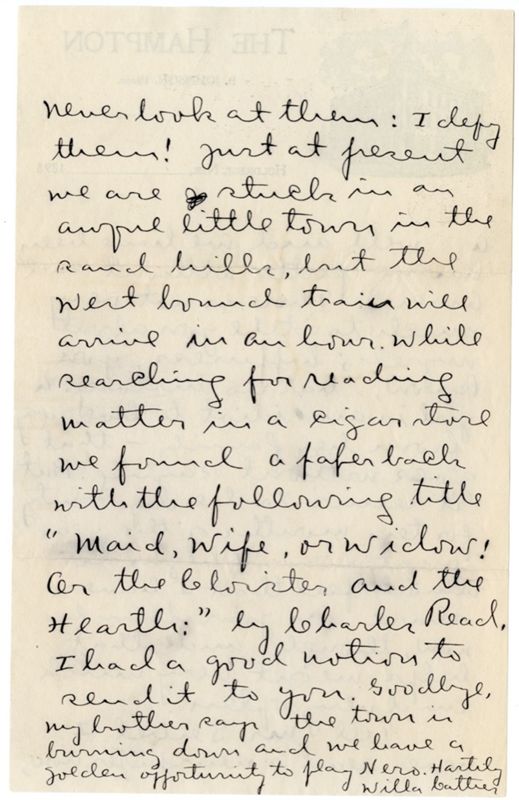 THE HAMPTON
never look at them: I defy
them! Just at present
we are stuck in an
awful little town in the
sand hills, but the
West bound train will
arrive in an hour. While
searching for reading
matter in a cigar store
we found a paper back
with the following title
"Maid, Wife, or Widow!
Or the Cloister and the
Hearth:" by Charles Read.
I had a good notion to
send it to you. Goodbye,
my brother says the town is
burning down and we have a
golden opportunity to play Nero. Hartily
Willa Cather